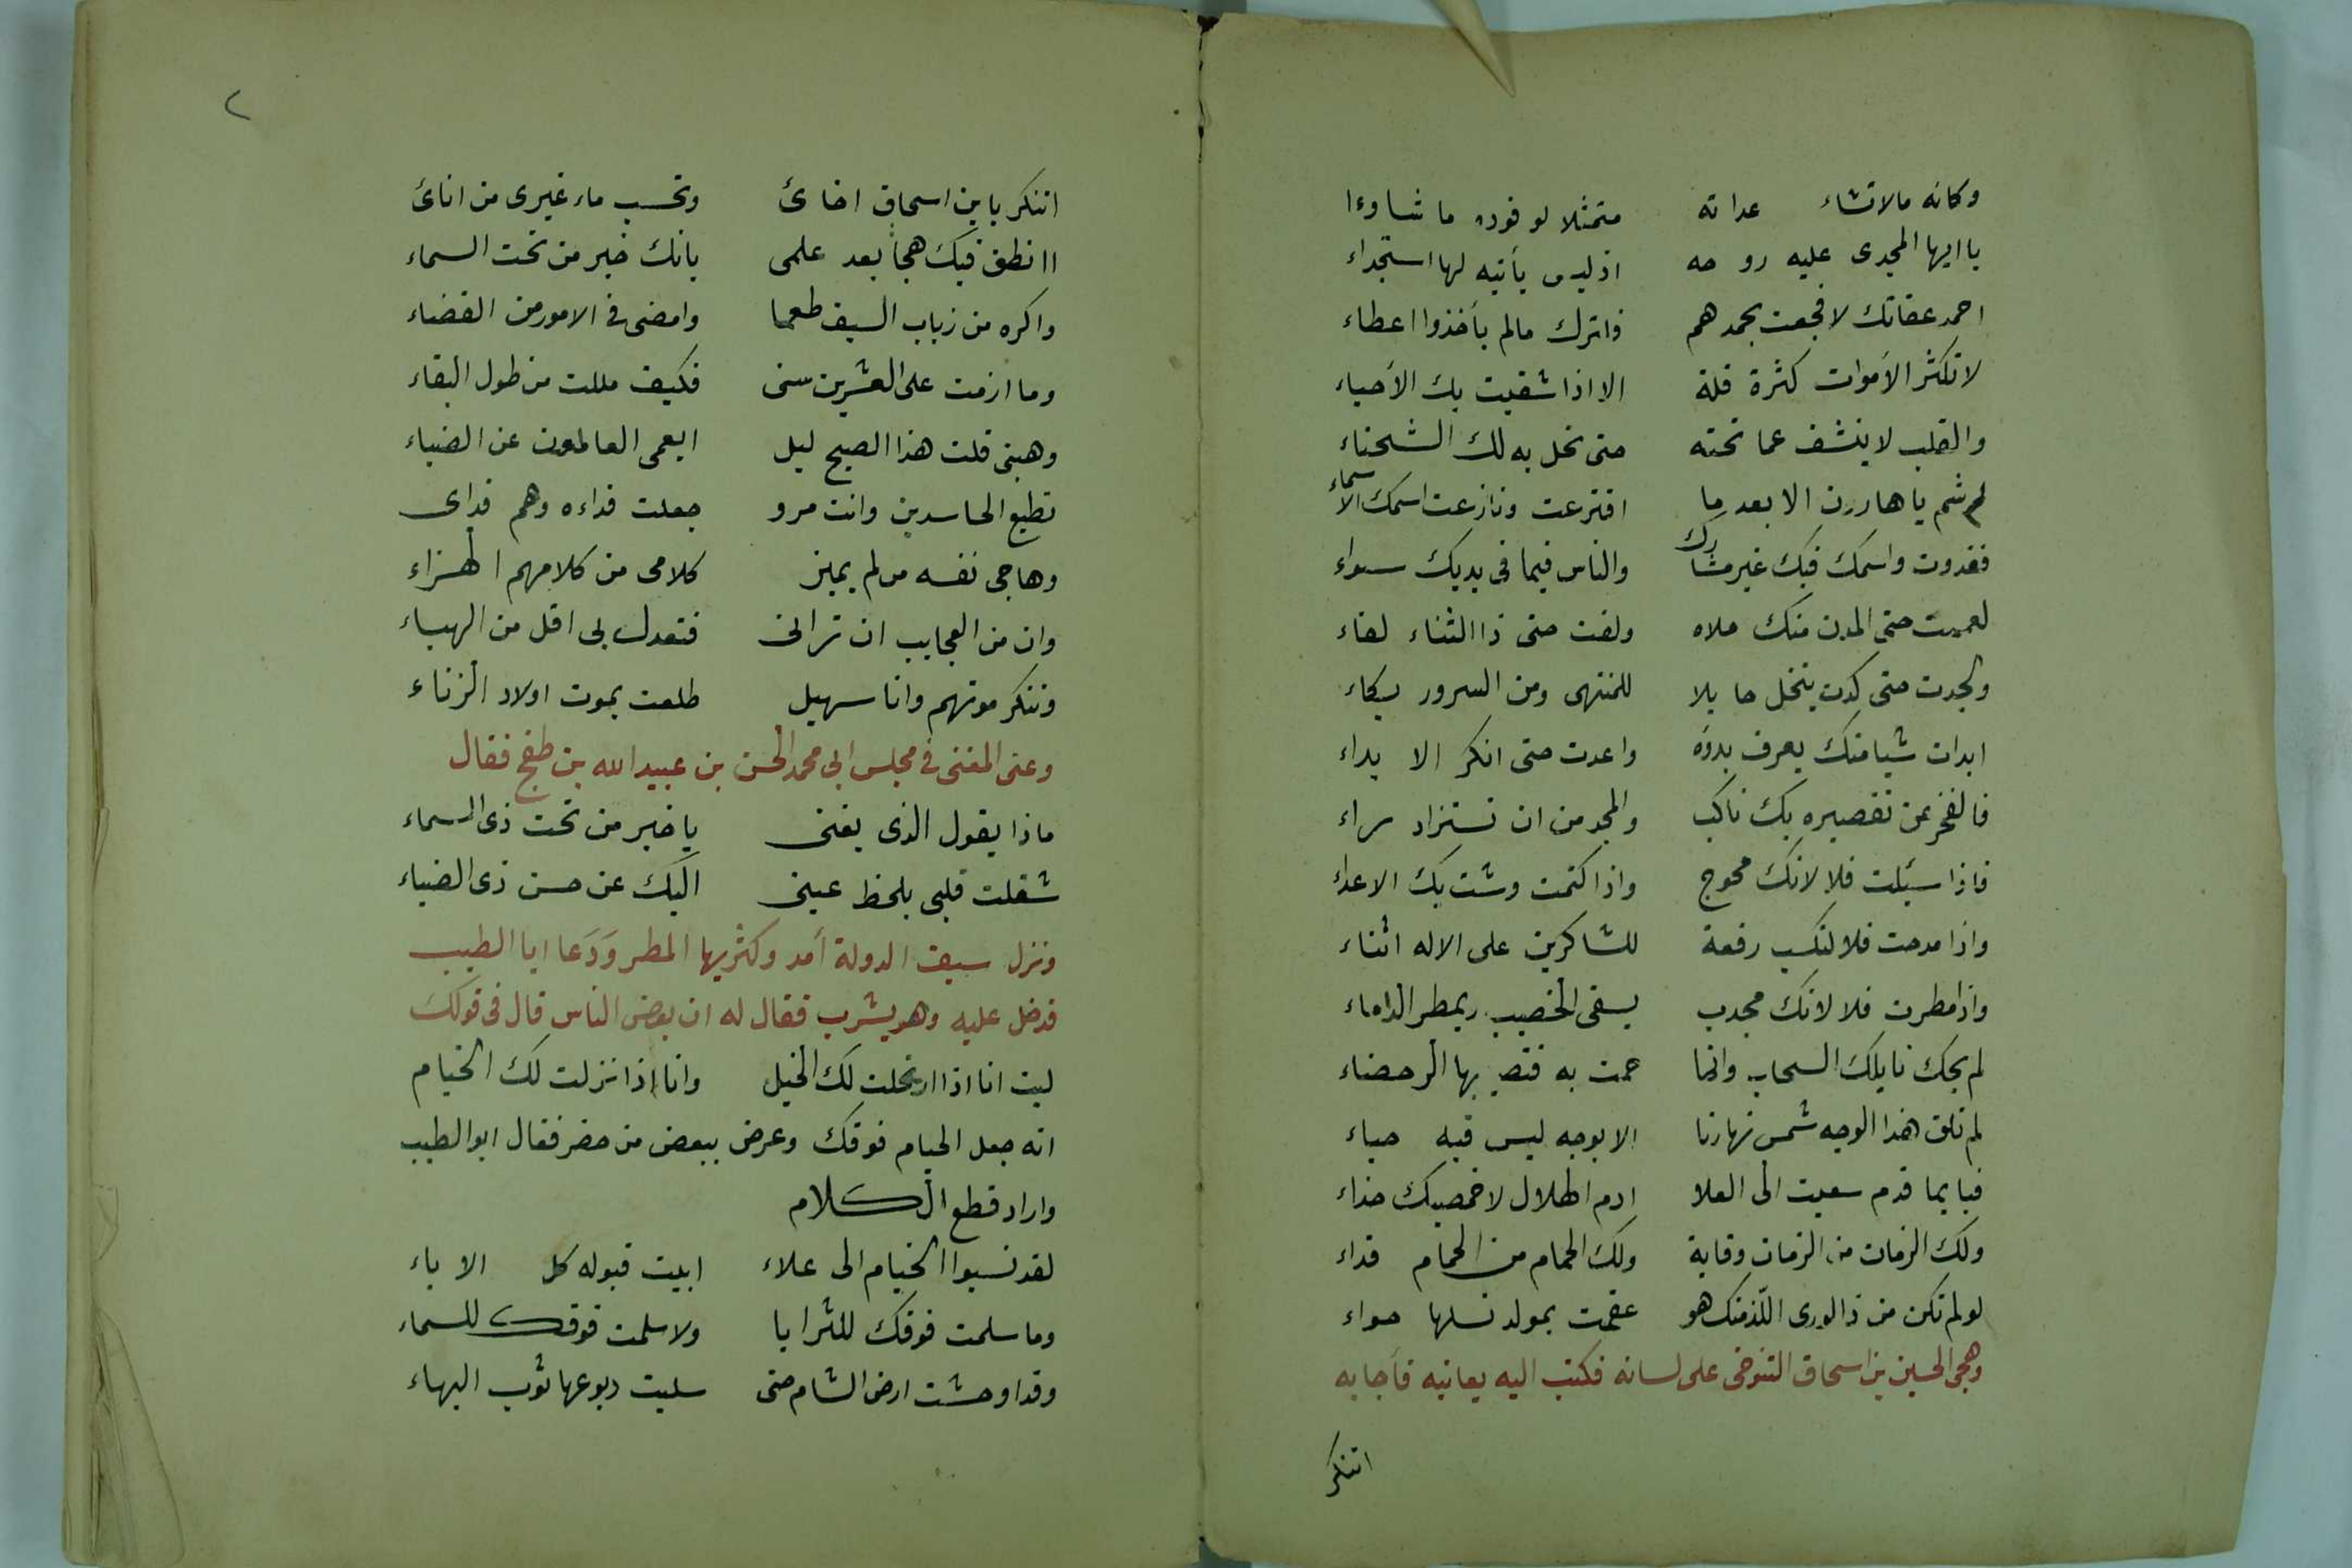 وكانه مالاتشاء عداته متمثلا لوفوده ما شاوءا
ياايها المجدى عليه روحه اذليس يأتيه لها استجداء
احمد عفاتك لافجعت بحمدهم فاترك مالم يأخذوا اعطاء
لاتكثر الأموات كثرة قلة الا اذا شقيت بك الأحياء
والقلب لاينشف عما تحته حتى تحل به لك الشحناء
لم تسم ياهارون الا بعد ما اقترعت ونازعت اسمك الاسماء
فغدوت واسمك فيك غير مشارك والناس فيما فى يديك سواء
لعميت حتى المدن منك ملاه ولفت حتى ذا الثناء لفاء
ولجدت حتى كدت بنخل حايلا للمنتهى ومن السرور بكاء
ابدات شيامنك يعرف بدؤه واعدت حتى انكر الابداء
فالفخر عن تقصيره بك ناكب والمجد من ان تستزاد براء
فاذا سئلت فلا لانك محوج واذا كتمت وشت بك الاعداء
واذا مدحت فلا لتكسب رفعة للشاكرين على الاله اثناء
واذا مطرت فلا لانك مجدب يسقى الخصيب ويمطر الداماء
لم يحك نايلك السحاب وانما حمت به فصبيبها الرحضاء
لم تلق هذا الوجه شمس نهارنا الا بوجه ليس فيه حياء
فبايما قدم سعيت الى العلا ادم الهلال لاخمصيك حذاء
ولك الزمان من الزمان وقاية ولك الحمام من الحمام فداء
لولم تكن من ذا لورى اللذ منك هو عقمت بمولد نسلها حواء
وهجى الحسين بن اسحاق التنوخى على لسانه فكتب اليه يعاتبه فأجابه
اتنكر
٢
اتنكر يابن اسحاق اخائ وتحسب ماء غيرى من انائ
اانطق فيك هجأ بعد علمى بانك خير من تحت السماء
واكره من زباب السيف طعما وامضى فى الامور من القضاء
وما ازمت على العشرين سنى فكيف مللت من طول البقاء
وهبنى قلت هذا الصبح ليل ايعمى العالمون عن الضياء
تطيع الحاسدين وانت مرو جعلت فداءه وهم فداى
وهاجى نفسه من لم يميز كلامى من كلامهم الهزاء
وان من العجايب ان ترانى فتعدل بى اقل من الهباء
وتنكر موتهم وانا سهيل طلعت بموت اولاد الزناء
وغنى المغنى فى مجلس ابى محمد الحسن بن عبيد الله بن طغج فقال
ماذا يقول الذى يغنى ياخير من تحت ذى السماء
شغلت قلبى بلحظ عينى اليك عن حسن ذى الضياء
ونزل سيف الدولة أمد وكثر بها المطر وَدَعا ابا الطيب
فدخل عليه وهو يشرب فقال له ان بعض الناس قال فى قولك
ليت انا اذا ارتحلت لك الخيل وانا اذا نزلت لك الخيام
انه جعل الخيام فوقك وعرض ببعض من حضر فقال ابو الطيب
واراد قطع الكلام
لقد نسبوا الخيام الى علاء ابيت قبوله كل الاباء
وما سلمت فوقك للثرايا ولا سلمت فوقك للسماء
وقد اوحشت ارض الشام حتى سلبت ربوعها ثوب البهاء